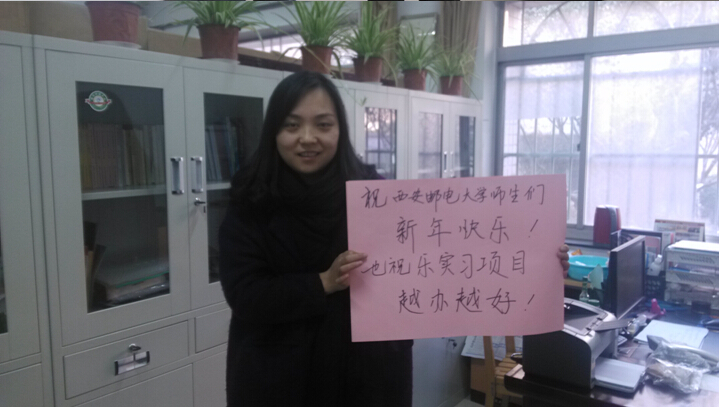 祝西安邮电大学师生们
新年快乐！
也祝乐实习项目
越办越好！